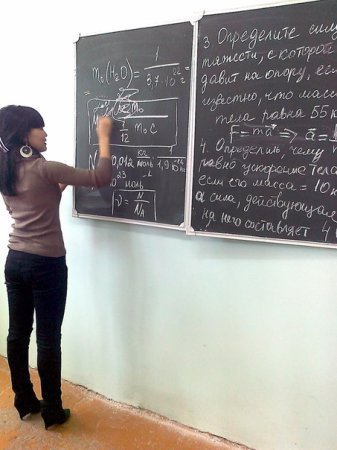 m₀(H₂O) = 1 / 3,7·10²²
m₀
1/12 m₀ C
0,012 кг
моль
ν = N/Nₐ
3 Определите силу
тяжести, с которой
давит на опору, если
известно, что масса
тела равна 55 к
F = ma ⇒ a =
4. Определить, чему
равно ускорение тела
если его масса = 10 к
а сила, действующая
на него составляет 4